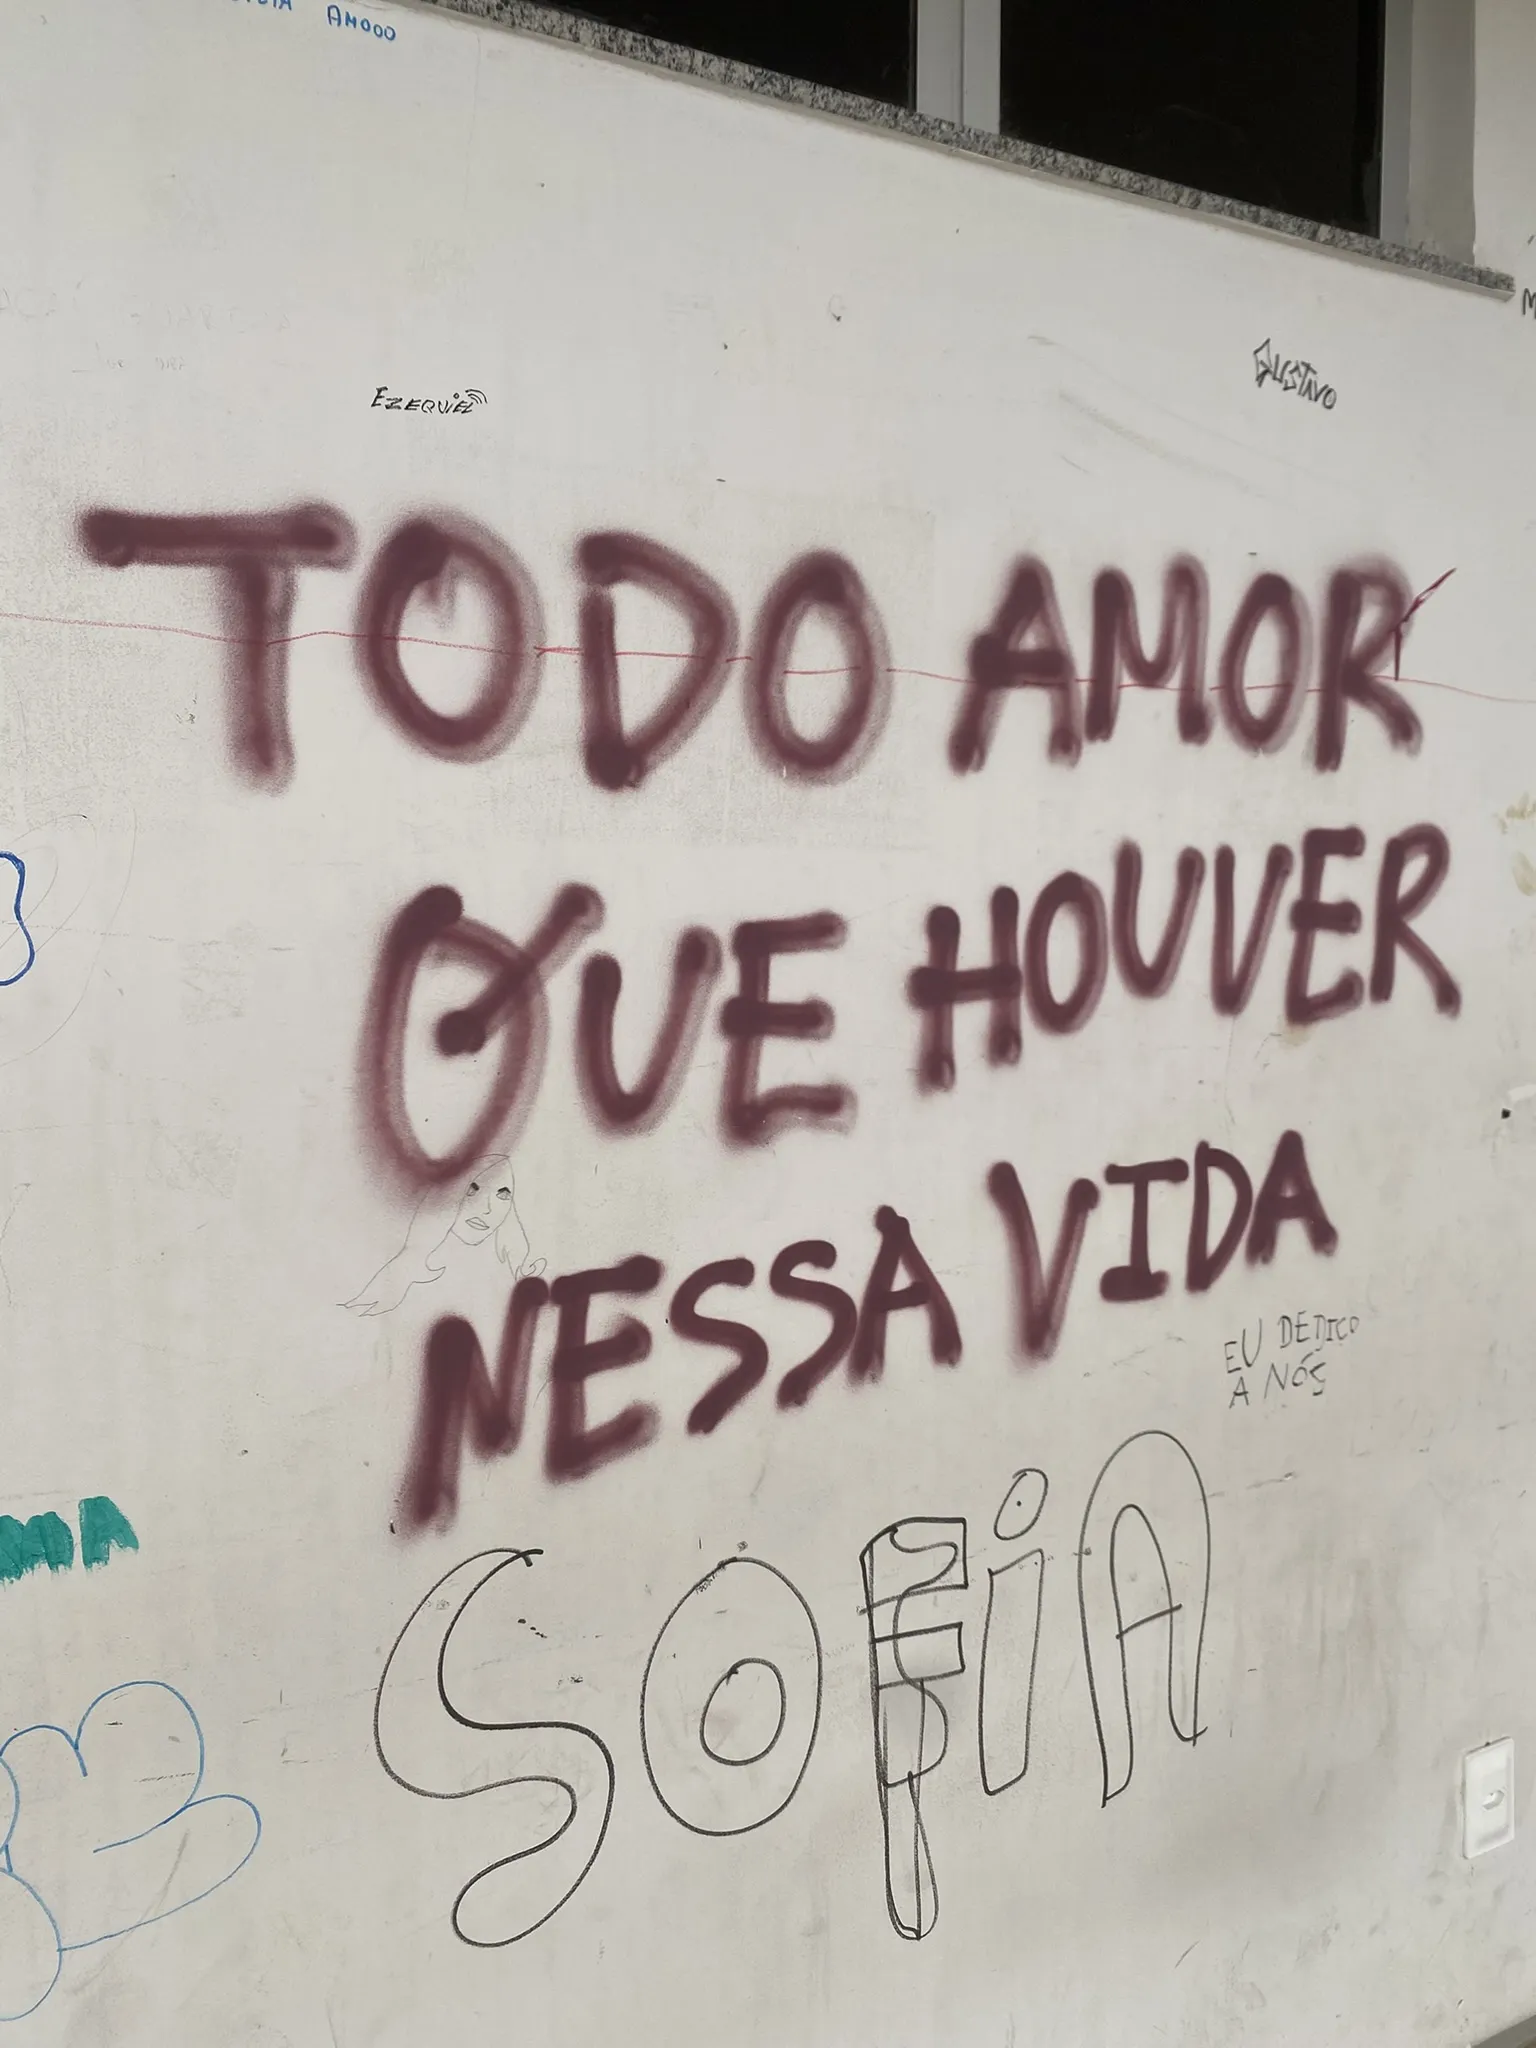 AMOOO
EZEQUIEL
GUSTAVO
TODO AMOR
QUE HOUVER
NESSA VIDA
EU DEDICO
A NÓS
SOFiA
MA